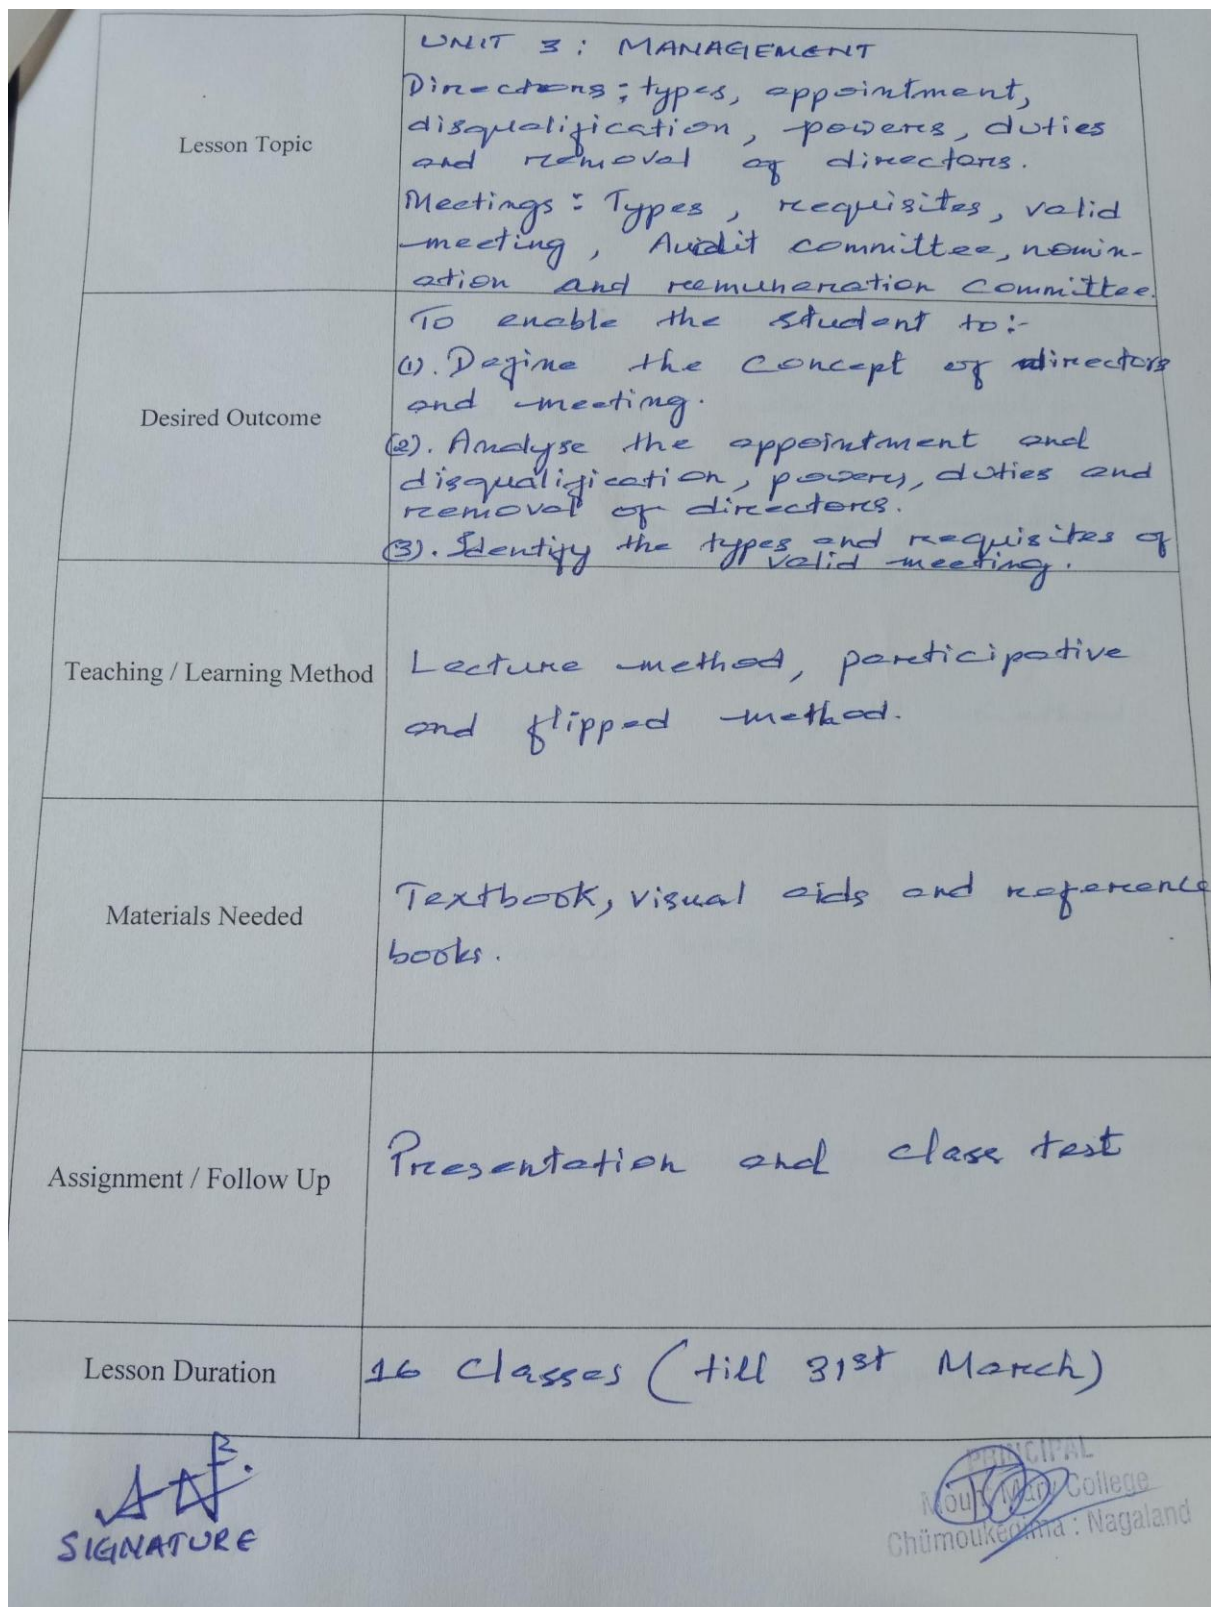 Lesson Topic
UNIT 3 : MANAGEMENT
Directions : types, appointment,
disqualification, powers, duties
and removal of directors.
Meetings : Types, requisites, valid
meeting, Audit committee, nomin-
ation and remuneration committee.
Desired Outcome
To enable the student to:-
(1). Define the concept of directors
and meeting.
(2). Analyse the appointment and
disqualification, powers, duties and
removal of directors.
(3). Identify the types and requisites of
valid meeting.
Teaching / Learning Method
Lecture method, participative
and flipped method.
Materials Needed
Textbook, visual aids and reference
books.
Assignment / Follow Up
Presentation and class test
Lesson Duration
16 Classes (till 31st March)
SIGNATURE
PRINCIPAL
Mount Mary College
Chümoukedima : Nagaland